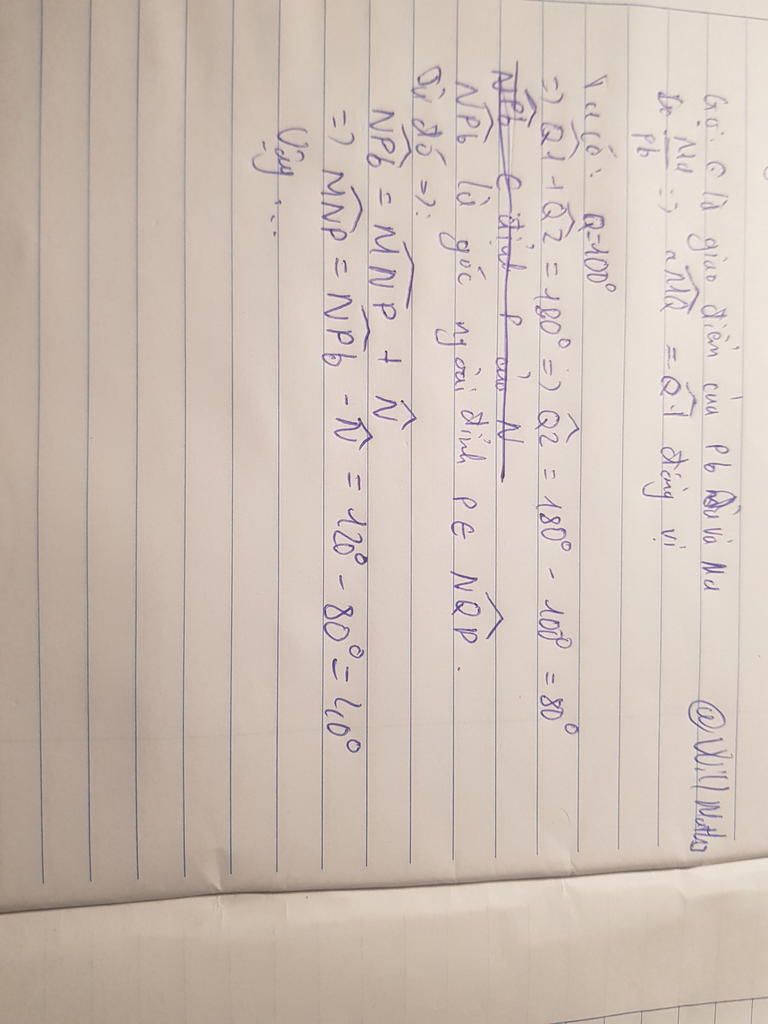 Gọi O là giao điểm của Pb và Ma @Will Maths
Do Ma // Pb => aMQ = Q1 đồng vị
Ta có: Q=100°
=> Q1 + Q2 = 180° => Q2 = 180° - 100° = 80°
NPb là góc ngoài đỉnh P ∈ NQP.
Từ đó =>:
NPb = MNP + N
=> MNP = NPb - N = 120° - 80° = 40°
Vậy ...